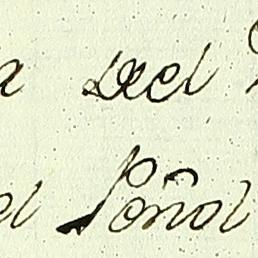 a del
el Peñol